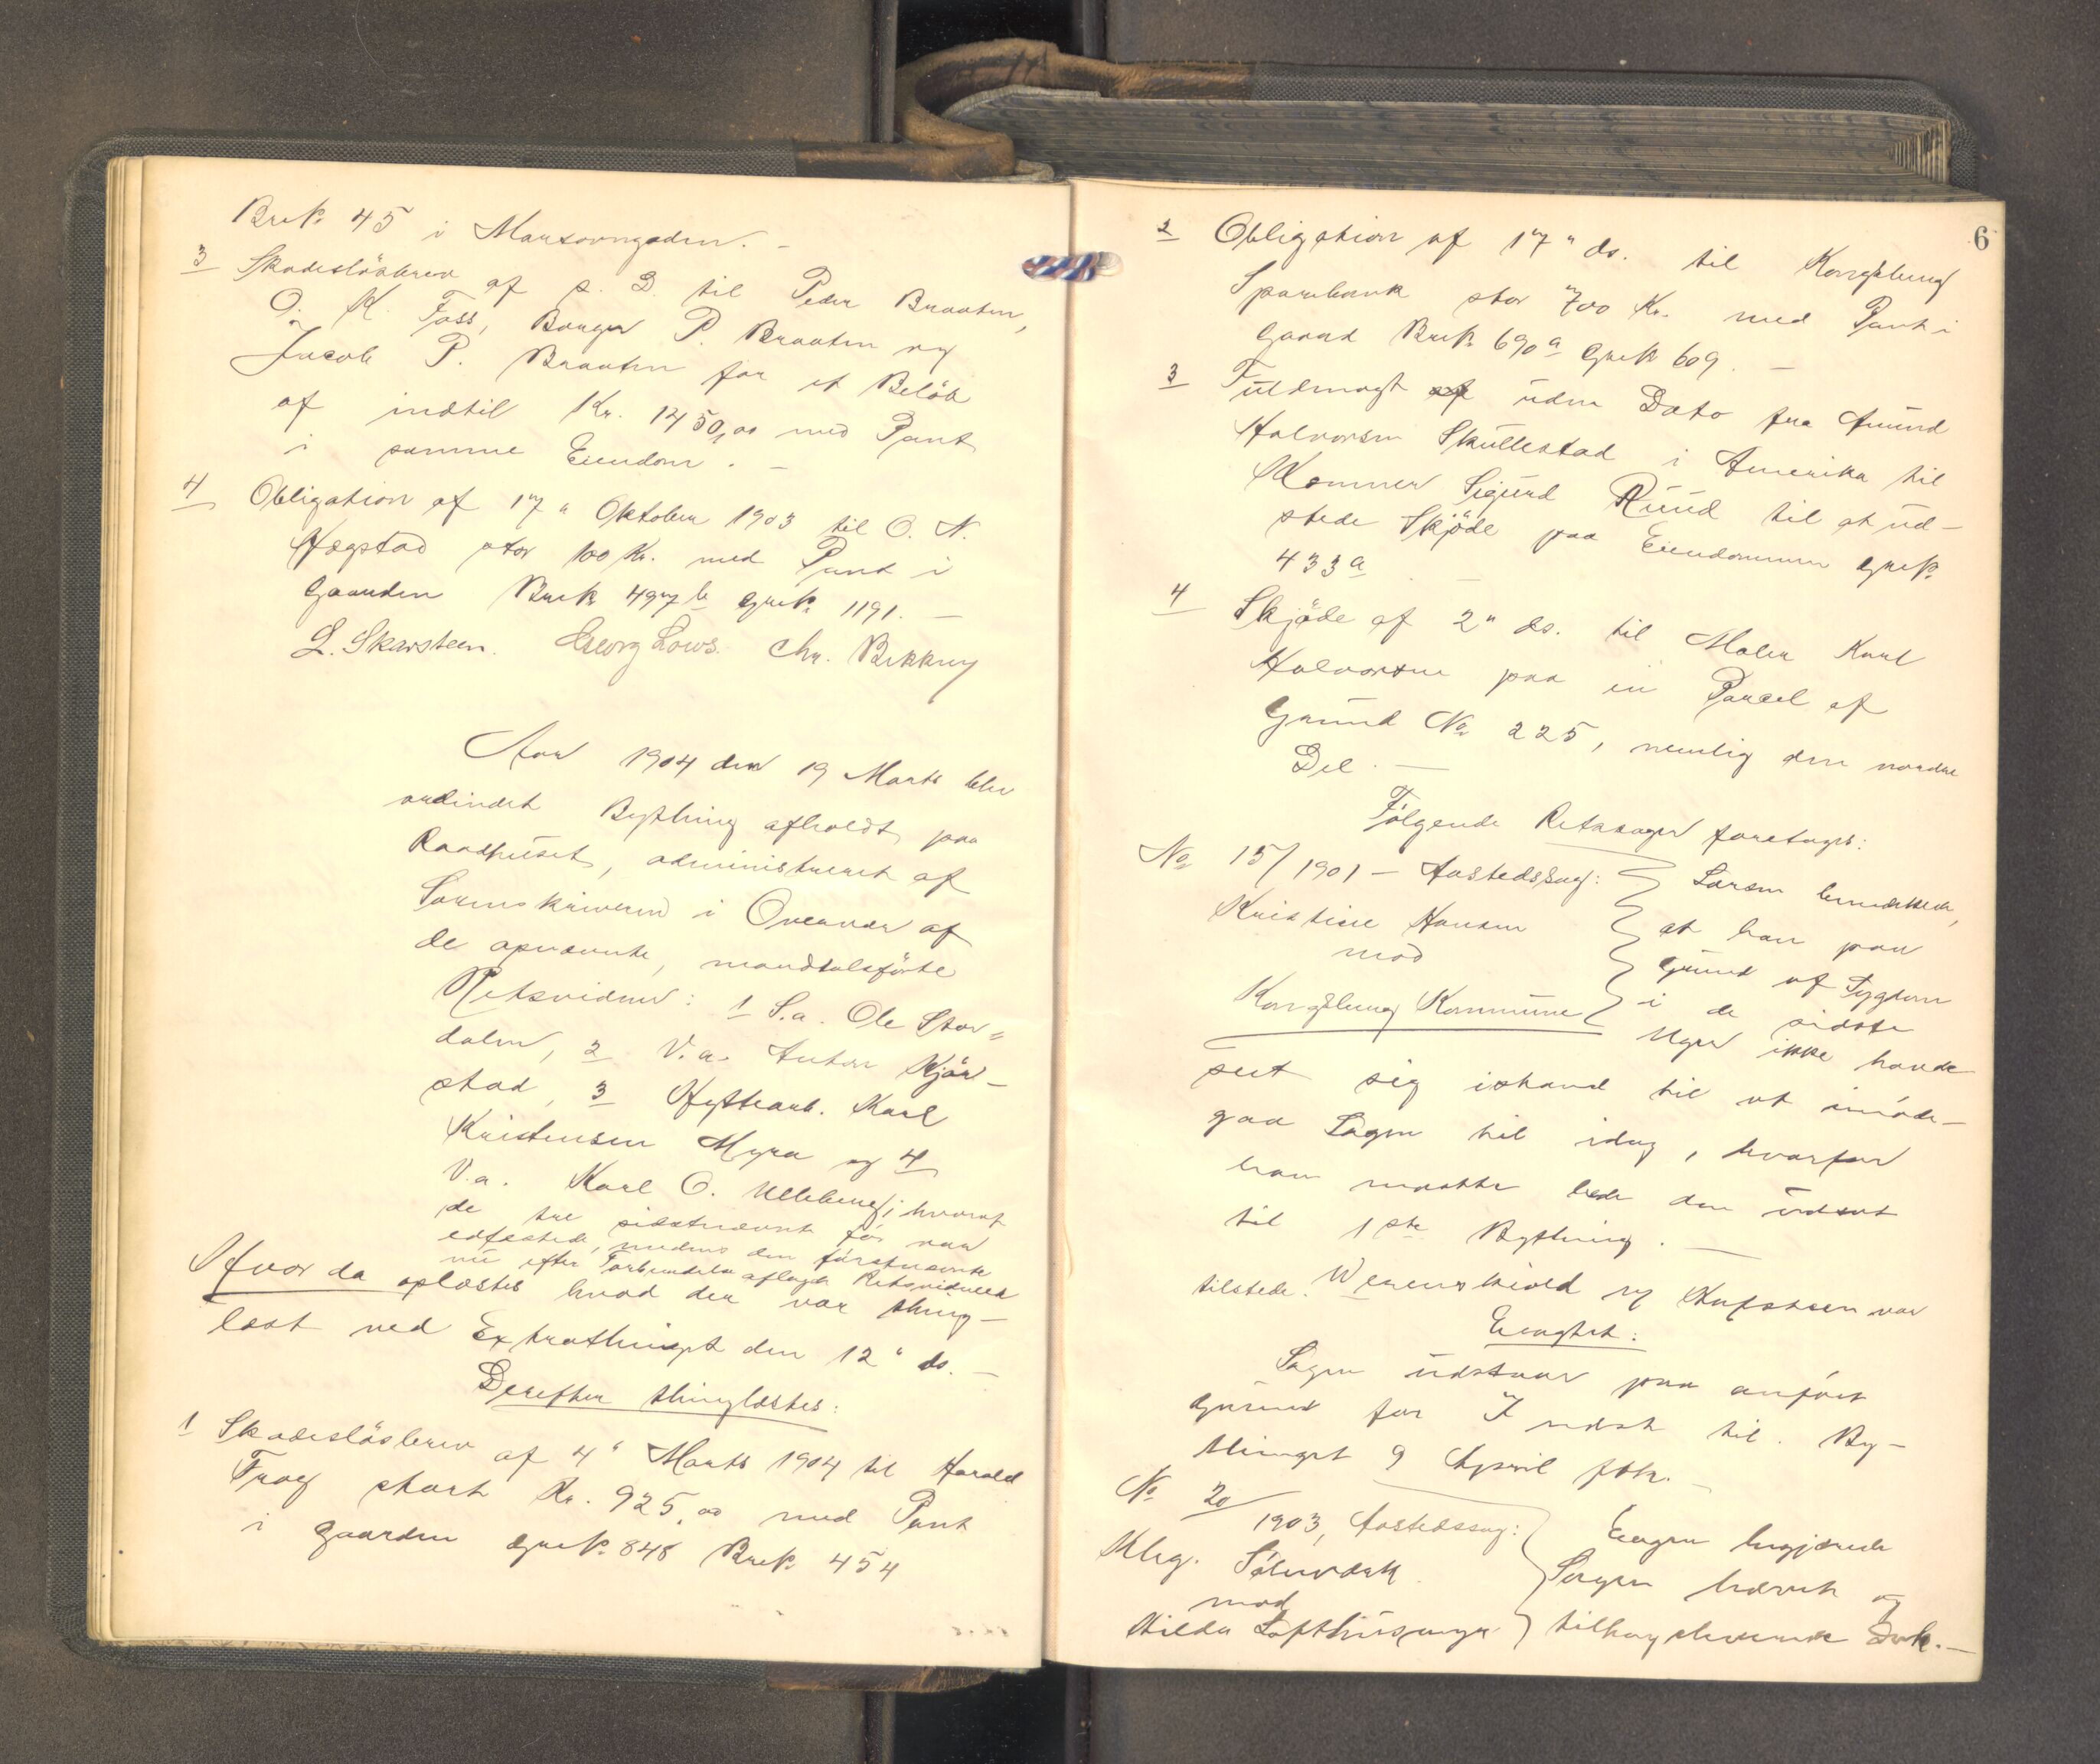 Brnk. 45 i Mansovngaden. –
3 Skadesløsbrev af s. D. til Peder Braaten,
O. K. Foss, Borger P. Braaten og
Jacob P. Braaten for et Beløb
af indtil Kr. 1450,00 med Pant
i samme Eiendom. –
4 Obligation af 17" Oktober 1903 til O. N.
Hegstad stor 100 Kr. med Pant i
Gaarden Brnk. 497 b Grnk. 1191. –
L. Skarsteen. Georg Lows. Chr. Bekkvy
Aar 1904 den 19 Marts blev
ordinært Bything afholdt paa
Raadhuset, administreret af
Sorenskriveren i Overvær af
de opnævnte, mandtalsførte
Retsvidner: 1 S.a. Ole Stor=
dalen, 2 V.a. Anton Kjær-
stad, 3 Hyttearb. Karl
Kristensen Myra og 4
V.a. Karl O. Ulleberg; hvoraf
de tre sidstnævnte før var
edfæstede, medens den førstnævnte
nu efter aflagde Retsvidneed
Hvor da oplæstes hvad der var thing-
læst ved Extrathinget den 12" ds. –
Derefter thinglæstes:
1 Skadesløsbrev af 4" Marts 1904 til Harald
Frog stort Kr. 925,00 med Pant
i Gaarden Grnk. 848 Brnk. 454
6
2 Obligation af 17" ds. til Kongsberg
Sparebank stor 700 Kr. med Pant i
Gaard Brnk. 690 a Grnk 609. –
3 Fuldmagt uden Dato fra Amund
Halvorsen Skullestad i Amerika til
Kæmner Sigurd Ruud til at ud-
stede Skjøde paa Eiendommen Grnk.
433 a. –
4 Skjøde af 2" ds. til Maler Karl
Halvorsen paa en Parcel af
Grund No 225, nemlig den nordre
Del. –
Følgende Retssager foretoges:
No 15/1901 – Aastedssag: Larsen bemærkede,
Kristine Hansen at han paa
mod Grund af Sygdom
Kongsberg Kommune i de sidste
Uger ikke havde
seet sig istand til at imøde-
gaa Sagen til idag, hvorfor
han maatte bede den udsat
til 1ste Bything. –
tilstede. Werenskiold og Kufsteen var
Eragtet:
Sagen udstaar paa anført
Grund for I næst til By-
thinget 9 April førstk. –
No 20/1903, Aastedssag: begjærede
Klcg. Sølvværk Sagen hævet og
mod
Hilda Lofthusunger tilbagelevering Dok. –